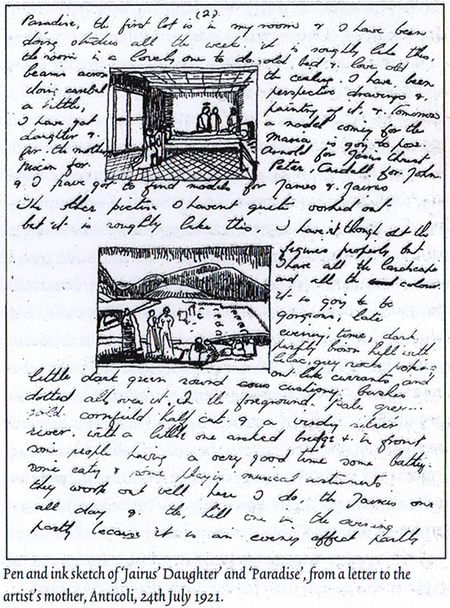 (2).
Paradise, the first lot is in my room & I have been
doing studies all the week, it is roughly like this,
the room is a lovely one to do, old bed & love old
beams across the ceiling. I have been
doing careful perspective drawings &
a little, painting of it, & tomorrow
I have got a model coming for the
daughter & Maria is going to pose
for the mother Arnold for Jesus Christ
for Peter, Cardell for John
& I have got to find models for James & Jairus
The other picture I havent quite worked out
but it is roughly like this. I havent thought out the
figures properly but
I have all the landscape
and all the colour
it is going to be
gorgeous, late
evening time, dark
brown hill with
lilac, grey rocks poking
out like currants and
little dark green round cushiony bushes
dotted all over it. In the foreground. pale green
cornfield half cut & a windy silver
river. with a little one arched bridge & in front
some people having a very good time some bathing
some eating & some playing musical instruments
they work out well here I do, the Jairus one
all day, & the hill one in the evening
partly because it is an evening effect partly
Pen and ink sketch of ‘Jairus’ Daughter’ and ‘Paradise’, from a letter to the
artist’s mother, Anticoli, 24th July 1921.